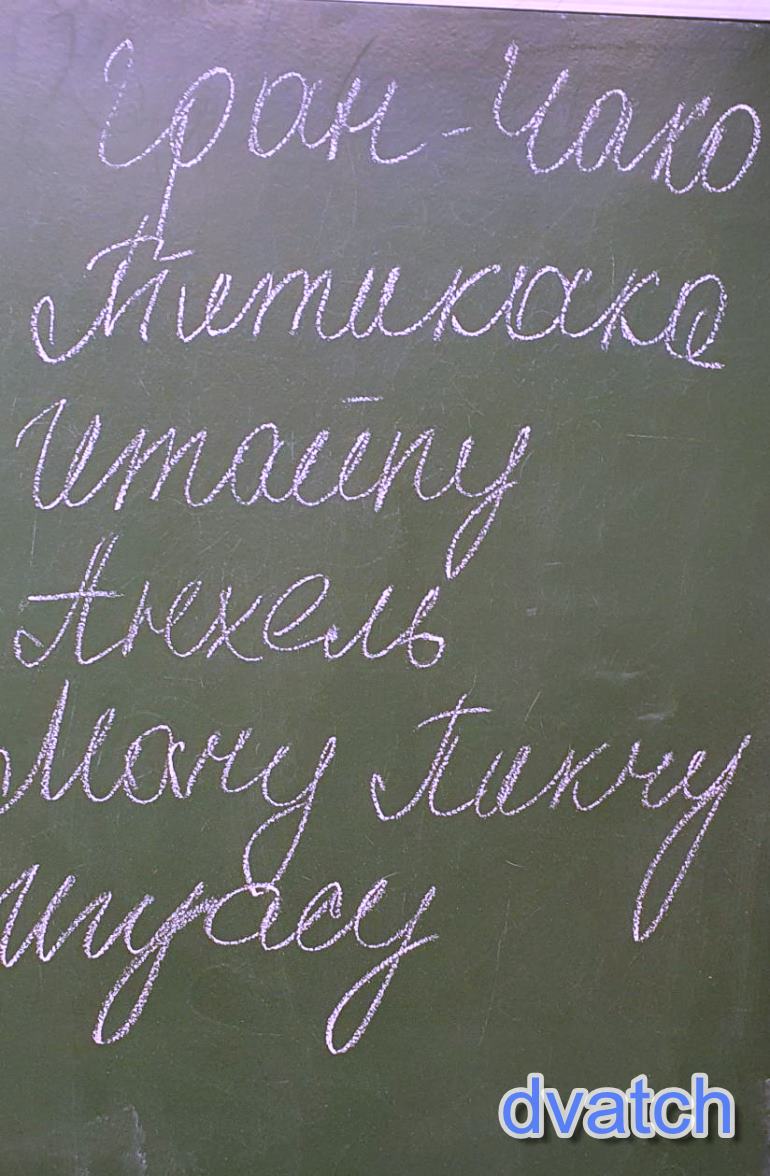 Гран-Чако
Титикака
Итайпу
Анхель
Мачу Пикчу
Игуасу
dvatch